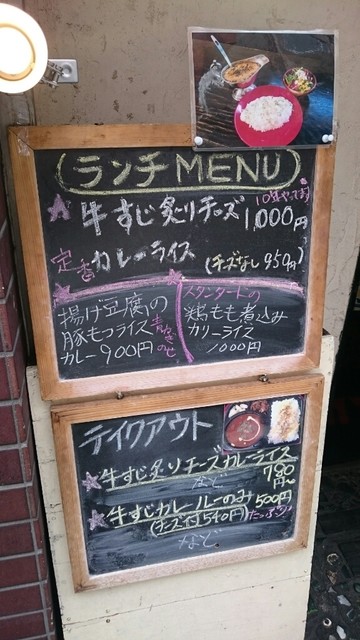 (ランチMENU)
10年やってます
牛すじ炙りチーズ 1,000円
定番 カレーライス
(チーズなし950円)
揚げ豆腐の
豚もつライス
カレー900円
青ねぎのせ
スタンダードの
鶏もも煮込み
カリーライス
1000円
テイクアウト
牛すじ炙りチーズカレーライス
790円~
など
牛すじカレールーのみ500円
(チーズ付540円)たっぷり
など